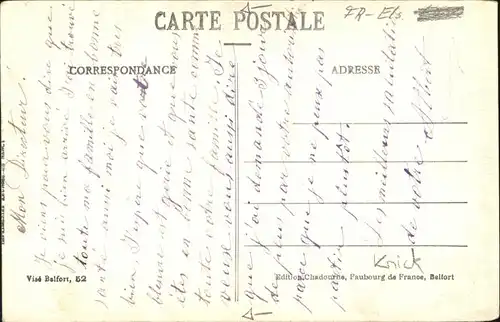 CARTE POSTALE
FR-Els.
CORRESPONDANCE
ADRESSE
Mon Directeur.
Je viens pour vous dire que
je suis bien arrivé J'ai trouvé
toute ma famille en bonne
santé aussi moi je vais très
bien J'espere que votre
est guérie et que vous
êtes en bonne santé comme
toute votre famille. Je
veux vous aussi dire
que j'ai demandé 3 jours
de plus par votre
parce que je ne peux pas
partir plutôt.
Les meilleurs salutations
de votre Albert
Knick
Visé Belfort, 52
Edition Chadourne, Faubourg de France, Belfort